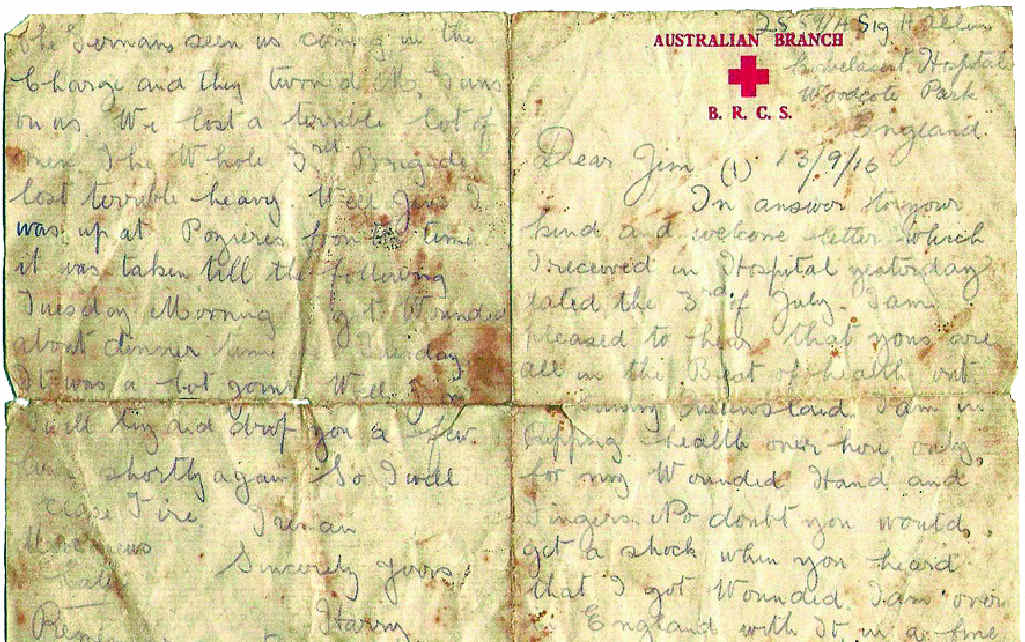 AUSTRALIAN BRANCH
B. R. C. S.
Hospital
Woodcote Park
England.
Dear Jim (1) 13/9/16
In answer to your
kind and welcome letter which
I received in Hospital yesterday
dated the 3rd of July. I am
pleased to hear that yous are
all in the Best of health out
Sunny Queensland. I am in
tipping health over here only
for my Wounded Hand and
Fingers. No doubt you would
got a shock when you heard
that I got Wounded. I am over
in England with It in a fine
The Germans seen us coming in the
Charge and they turned the Guns
on us. We lost a terrible lot of
men The Whole 3rd Brigade
lost terrible heavy. Well Jim I
was up at Pozieres from time
it was taken till the following
Tuesday Morning got Wounded
about dinner time Tuesday
It was a hot going Well
I will try and drop you a few
shortly again So I will
cease Fire.
Sincerely Yours
Harry